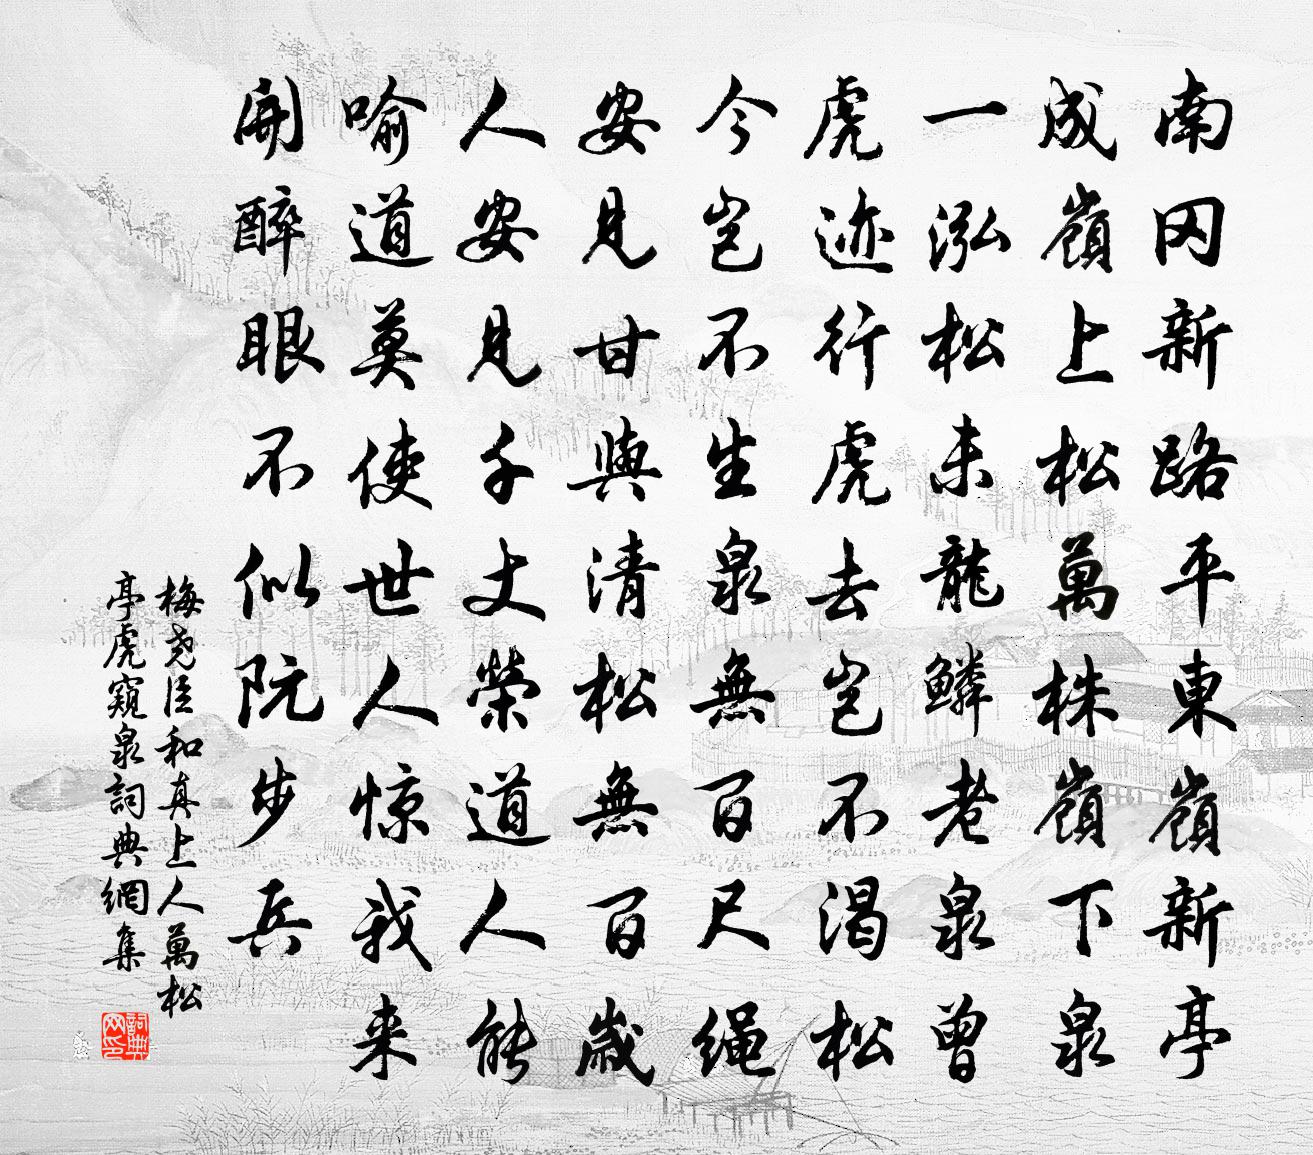 南冈新路平東嶺新亭
成嶺上松萬株嶺下泉
一泓松未龍鱗老泉曾
虎迹行虎去岂不渴松
今岂不生泉無百尺绳
安見甘與清松無百歲
人安見千丈榮道人能
喻道莫使世人惊我来
開醉眼不似阮步兵
梅尧臣和真上人萬松
亭虎窺泉詞典網集
詞典网印